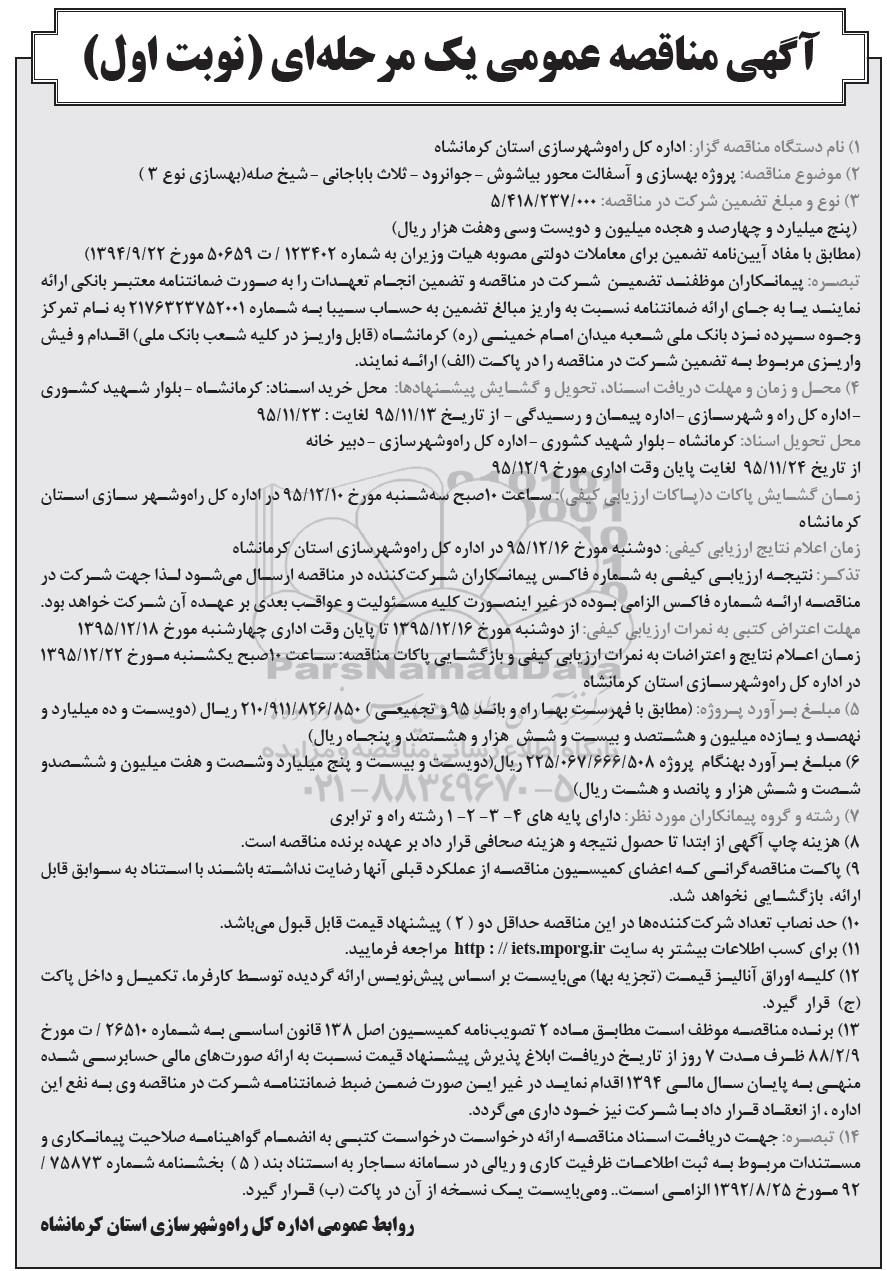 آگهی مناقصه عمومی یک مرحله‌ای (نوبت اول)
۱) نام دستگاه مناقصه گزار: اداره کل راه‌وشهرسازی استان کرمانشاه
۲) موضوع مناقصه: پروژه بهسازی و آسفالت محور بیاشوش - جوانرود - ثلاث باباجانی - شیخ صله(بهسازی نوع ۳ )
۳) نوع و مبلغ تضمین شرکت در مناقصه: ۵/۴۱۸/۲۳۷/۰۰۰
(پنج میلیارد و چهارصد و هجده میلیون و دویست وسی وهفت هزار ریال)
(مطابق با مفاد آیین‌نامه تضمین برای معاملات دولتی مصوبه هیات وزیران به شماره ۱۲۳۴۰۲ / ت ۵۰۶۵۹ مورخ ۱۳۹۴/۹/۲۲)
تبصره: پیمانکاران موظفند تضمین شرکت در مناقصه و تضمین انجام تعهدات را به صورت ضمانتنامه معتبر بانکی ارائه
نمایند یا به جای ارائه ضمانتنامه نسبت به واریز مبالغ تضمین به حساب سیبا به شماره ۲۱۷۶۳۲۳۷۵۲۰۰۱ به نام تمرکز
وجوه سپرده نزد بانک ملی شعبه میدان امام خمینی (ره) کرمانشاه (قابل واریز در کلیه شعب بانک ملی) اقدام و فیش
واریزی مربوط به تضمین شرکت در مناقصه را در پاکت (الف) ارائه نمایند.
۴) محل و زمان و مهلت دریافت اسناد، تحویل و گشایش پیشنهادها: محل خرید اسناد: کرمانشاه - بلوار شهید کشوری
- اداره کل راه و شهرسازی - اداره پیمان و رسیدگی - از تاریخ ۹۵/۱۱/۱۳ لغایت : ۹۵/۱۱/۲۳
محل تحویل اسناد: کرمانشاه - بلوار شهید کشوری - اداره کل راه‌وشهرسازی - دبیر خانه
از تاریخ ۹۵/۱۱/۲۴ لغایت پایان وقت اداری مورخ ۹۵/۱۲/۹
زمان گشایش پاکات د(پاکات ارزیابی کیفی): ساعت ۱۰صبح سه‌شنبه مورخ ۹۵/۱۲/۱۰ در اداره کل راه‌وشهر سازی استان
کرمانشاه
زمان اعلام نتایج ارزیابی کیفی: دوشنبه مورخ ۹۵/۱۲/۱۶ در اداره کل راه‌وشهرسازی استان کرمانشاه
تذکر: نتیجه ارزیابی کیفی به شماره فاکس پیمانکاران شرکت‌کننده در مناقصه ارسال می‌شود لذا جهت شرکت در
مناقصه ارائه شماره فاکس الزامی بوده در غیر اینصورت کلیه مسئولیت و عواقب بعدی بر عهده آن شرکت خواهد بود.
مهلت اعتراض کتبی به نمرات ارزیابی کیفی: از دوشنبه مورخ ۱۳۹۵/۱۲/۱۶ تا پایان وقت اداری چهارشنبه مورخ ۱۳۹۵/۱۲/۱۸
زمان اعلام نتایج و اعتراضات به نمرات ارزیابی کیفی و بازگشایی پاکات مناقصه: ساعت ۱۰صبح یکشنبه مورخ ۱۳۹۵/۱۲/۲۲
در اداره کل راه‌وشهرسازی استان کرمانشاه
ParsNamadData
۵) مبلغ برآورد پروژه: (مطابق با فهرست بها راه و باند ۹۵ و تجمیعی) ۲۱۰/۹۱۱/۸۲۶/۸۵۰ ریال (دویست و ده میلیارد و
نهصد و یازده میلیون و هشتصد و بیست و شش هزار و هشتصد و پنجاه ریال)
پایگاه اطلاع رسانی مناقصه و مزایده
۶) مبلغ برآورد بهنگام پروژه ۲۲۵/۰۶۷/۶۶۶/۵۰۸ ریال(دویست و بیست و پنج میلیارد وشصت و هفت میلیون و ششصدو
شصت و شش هزار و پانصد و هشت ریال)
۰۲۱-۸۸۳۴۹۶۷۰-۵
۷) رشته و گروه پیمانکاران مورد نظر: دارای پایه های ۴- ۳- ۲- ۱ رشته راه و ترابری
۸) هزینه چاپ آگهی از ابتدا تا حصول نتیجه و هزینه صحافی قرار داد بر عهده برنده مناقصه است.
۹) پاکت مناقصه‌گرانی که اعضای کمیسیون مناقصه از عملکرد قبلی آنها رضایت نداشته باشند با استناد به سوابق قابل
ارائه، بازگشایی نخواهد شد.
۱۰) حد نصاب تعداد شرکت‌کننده‌ها در این مناقصه حداقل دو ( ۲ ) پیشنهاد قیمت قابل قبول می‌باشد.
۱۱) برای کسب اطلاعات بیشتر به سایت http : // iets.mporg.ir مراجعه فرمایید.
۱۲) کلیه اوراق آنالیز قیمت (تجزیه بها) می‌بایست بر اساس پیش‌نویس ارائه گردیده توسط کارفرما، تکمیل و داخل پاکت
(ج) قرار گیرد.
۱۳) برنده مناقصه موظف است مطابق ماده ۲ تصویب‌نامه کمیسیون اصل ۱۳۸ قانون اساسی به شماره ۲۶۵۱۰ / ت مورخ
۸۸/۲/۹ ظرف مدت ۷ روز از تاریخ دریافت ابلاغ پذیرش پیشنهاد قیمت نسبت به ارائه صورت‌های مالی حسابرسی شده
منهی به پایان سال مالی ۱۳۹۴ اقدام نماید در غیر این صورت ضمن ضبط ضمانتنامه شرکت در مناقصه وی به نفع این
اداره ، از انعقاد قرار داد با شرکت نیز خود داری می‌گردد.
۱۴) تبصره: جهت دریافت اسناد مناقصه ارائه درخواست درخواست کتبی به انضمام گواهینامه صلاحیت پیمانکاری و
مستندات مربوط به ثبت اطلاعات ظرفیت کاری و ریالی در سامانه ساجار به استناد بند ( ۵ ) بخشنامه شماره ۷۵۸۷۳ /
۹۲ مورخ ۱۳۹۲/۸/۲۵ الزامی است.. ومی‌بایست یک نسخه از آن در پاکت (ب) قرار گیرد.
روابط عمومی اداره کل راه‌وشهرسازی استان کرمانشاه